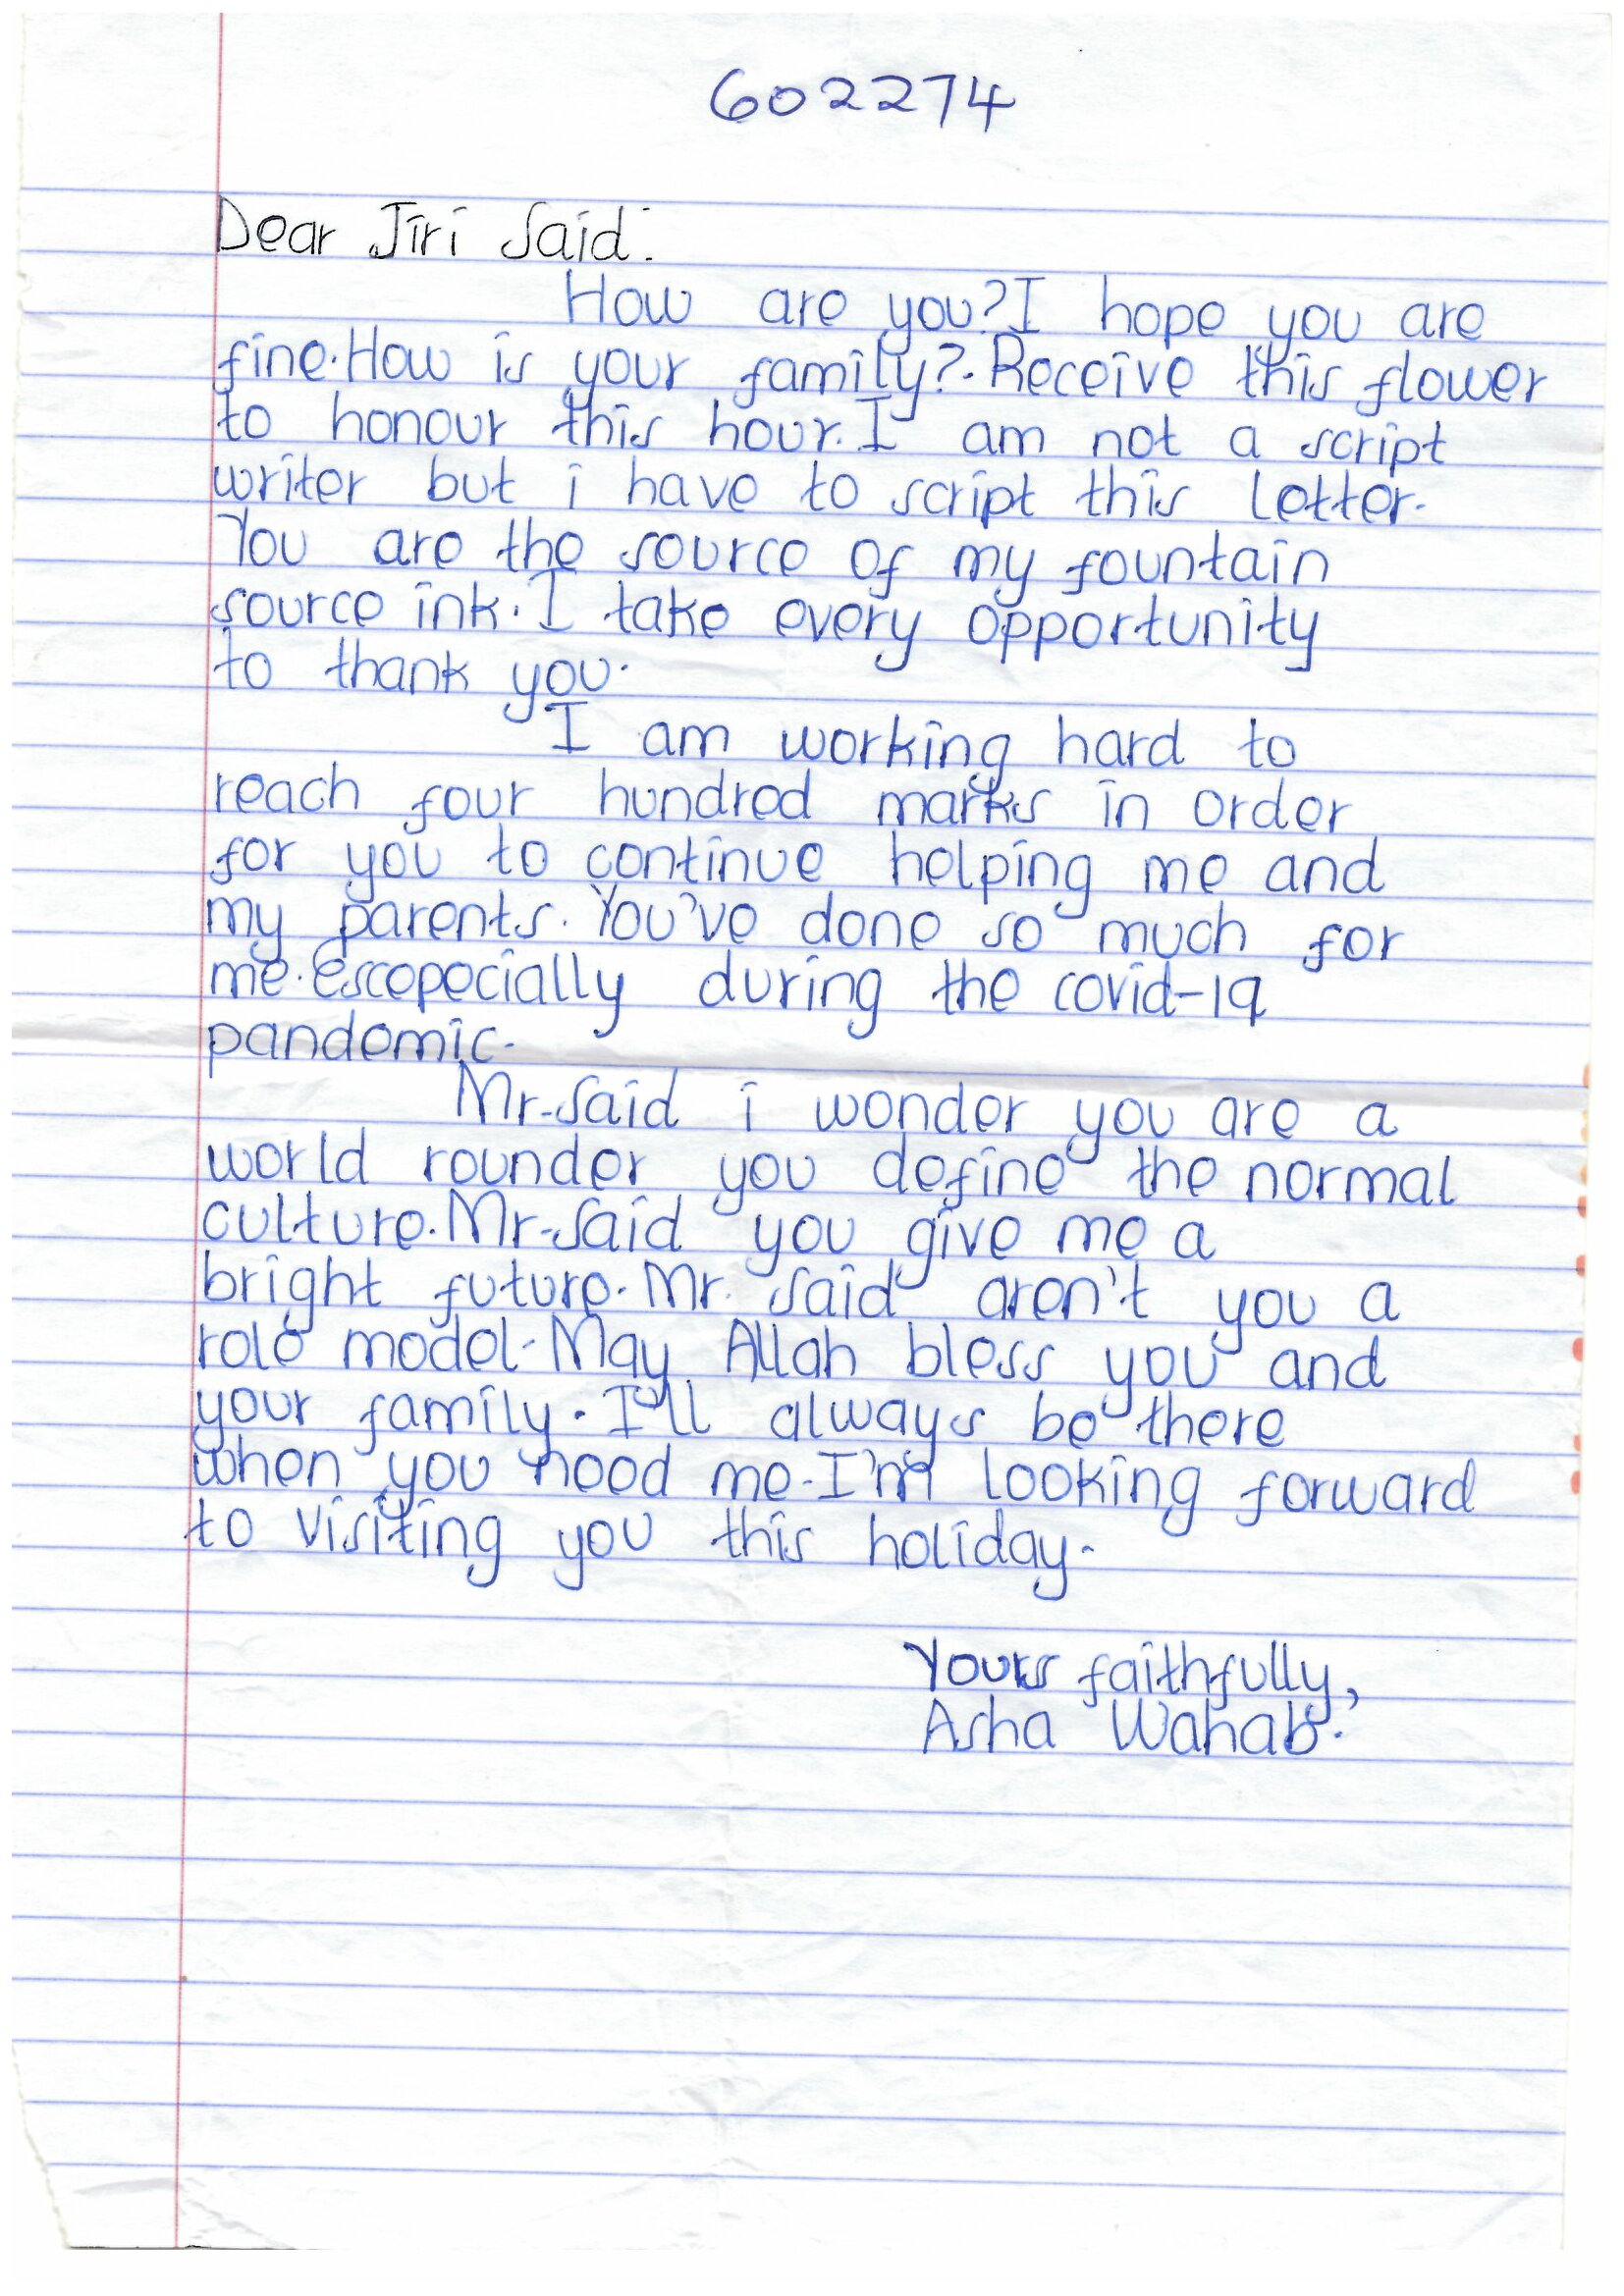 602274
Dear Jiri Said.
How are you? I hope you are
fine. How is your family?. Receive this flower
to honour this hour. I am not a script
writer but i have to script this letter.
You are the source of my fountain
source ink. I take every opportunity
to thank you.
I am working hard to
reach four hundred marks in order
for you to continue helping me and
my parents. You've done so much for
me. Escepecially during the covid-19
pandemic.
Mr. Said i wonder you are a
world rounder you define the normal
culture. Mr. Said you give me a
bright future. Mr. Said aren't you a
role model. May Allah bless you and
your family. I'll always be there
when you need me. I'm looking forward
to visiting you this holiday.
Yours faithfully,
Asha Wahab.